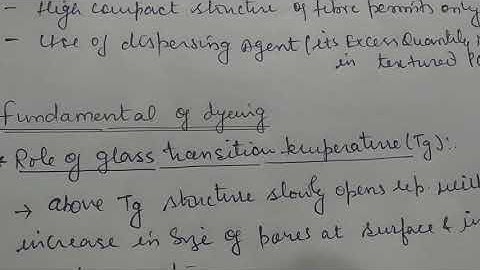 - High compact structure of fibre permits only
- Use of dispersing Agent (its Excess Quantity
in textured
fundamental of dyeing
* Role of glass transition temperature (Tg):
→ above Tg structure slowly opens up with
increase in size of pores at surface & in